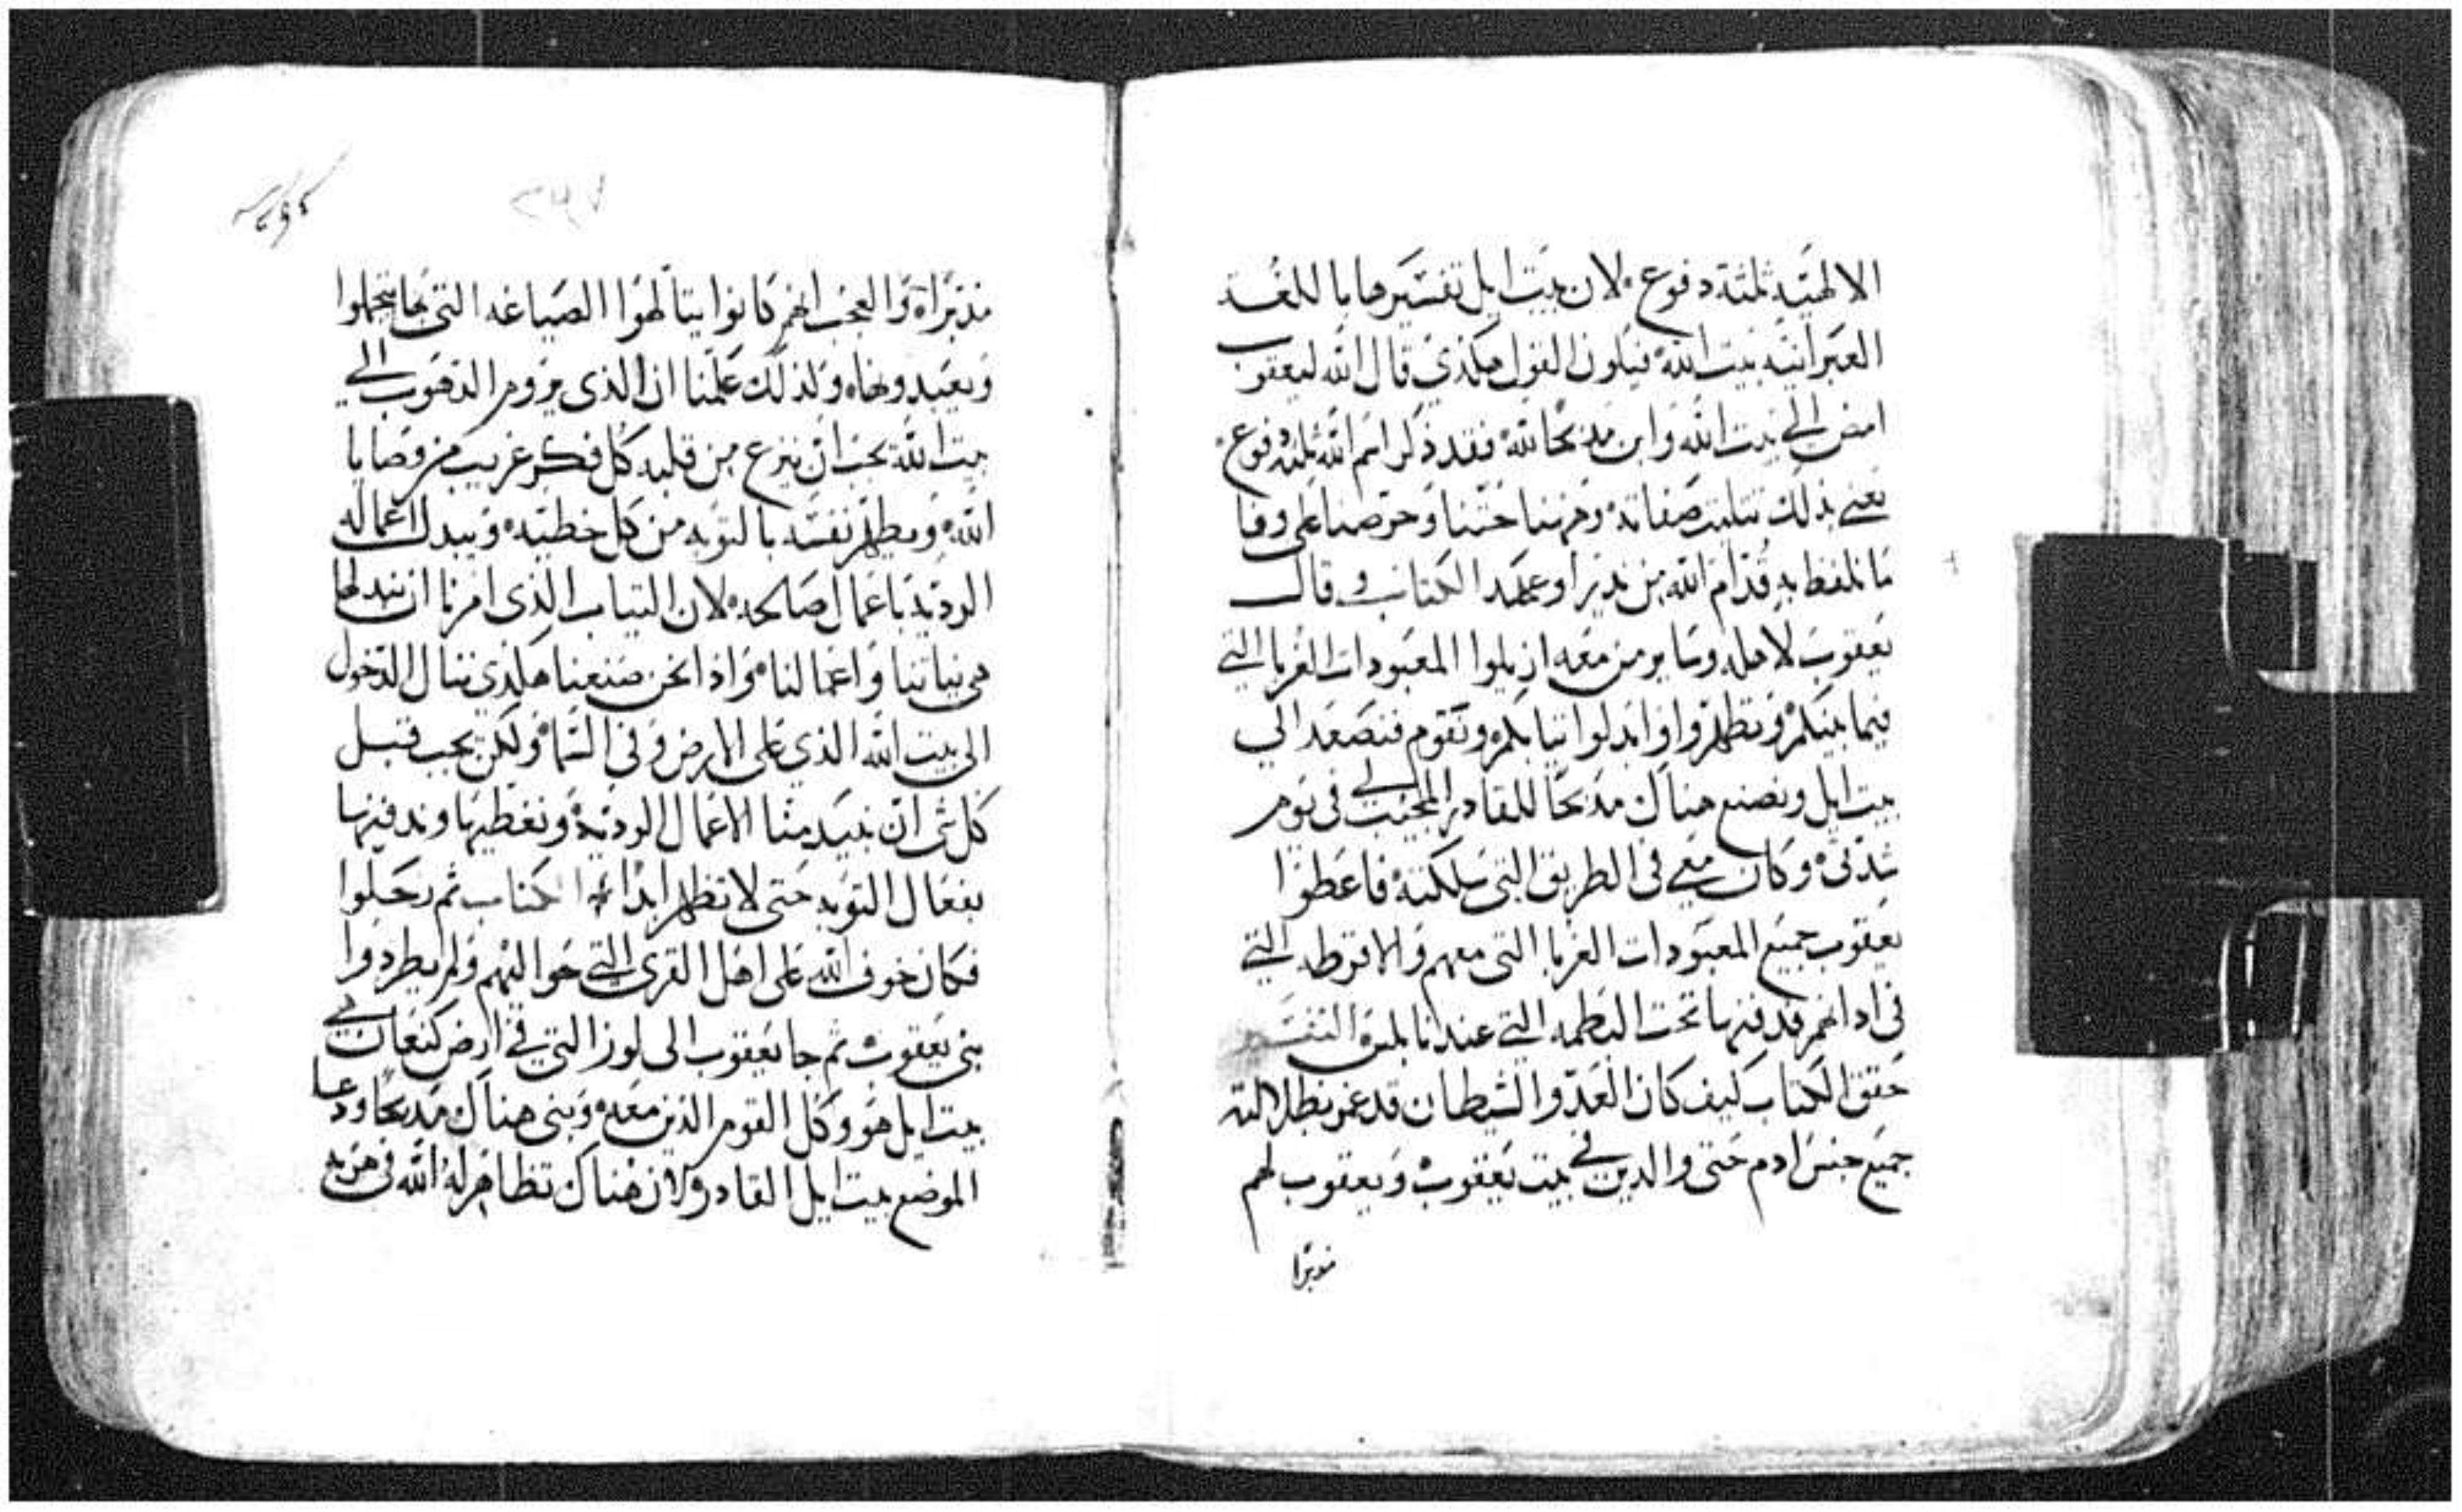 الالهيه ثلثة دفوع ۰ لان بيت ايل تفسيرها باللغـه
العبرانيه بيت الله ۰ فيكون القول هكذي قال الله ليعقوب
امض الي بيت الله وابن مذبحًا لله ۰ فقد ذكر اسم الله ثلثه دفوع ۰
يعني بذلك تتليت صفاته ۰ وهم بنا حتنا وحرصنا على وفا
ما نلفظ به قدام الله من ندير او عهد الكتاب و قال
يعقوب لاهله وساير من معه ازيلوا المعبودات الغربا التي
فيما بينكم ۰ وتطهروا وابدلوا تيابكم ۰ ونقوم فنصعد الي
بيت ايل ونصنع هناك مذبحًا للقادر المجيب لي في يوم
شدتي ۰ وكان معي في الطريق التي سلكته ۰ فاعطوا
يعقوب جميع المعبودات الغربا التي معهم والاقرطه التي
في ادانهم فدفنها تحت البطمه التي عند نابلس التفسير
حقق الكتاب كيف كان العدو الشيطان قد غمر بظلالته
جميع جنس ادم حتى والدين في بيت يعقوب ۰ ويعقوب لهم
مدبرا
۲٩٧
مدبراه والعجب انهم كانوا يتالهوا الصياغه التي بها يتجملوا
ويعبدونها ۰ ولذلك علمنا ان الذي يروم الذهوب الي
بيت الله يجب ان ينزع من قلبه كل فكر غريب من وصايا
الله ۰ ويطهر نفسه بالتوبه من كل خطيه ۰ ويبدل اعماله
الرديه باعمال صالحه ۰ لان التياب الذي امرنا ان نبدلها
هي نياتنا واعمالنا ۰ واذا نحن صنعنا هكذي ننال الدخول
الى بيت الله الذي على الارض وفي السما ۰ ولكن يجب قبل
كل شي ان نبيد منا الاعمال الرديه ۰ ونغطيها وندفنها
بفعال التوبه حتى لا تظهر ابدًا + الكتاب ثم رحلوا
فكان خوف الله على اهل القرى التي حواليهم ولم يطردوا
بني يعقوب ۰ ثم جا يعقوب الى لوز التي في ارض كنعان هي
بيت ايل هو وكل القوم الذين معه ۰ وبنى هناك مذبحًا ودعا
الموضع بيت ايل القادر ۰ لان هناك تظاهر له الله في هربه